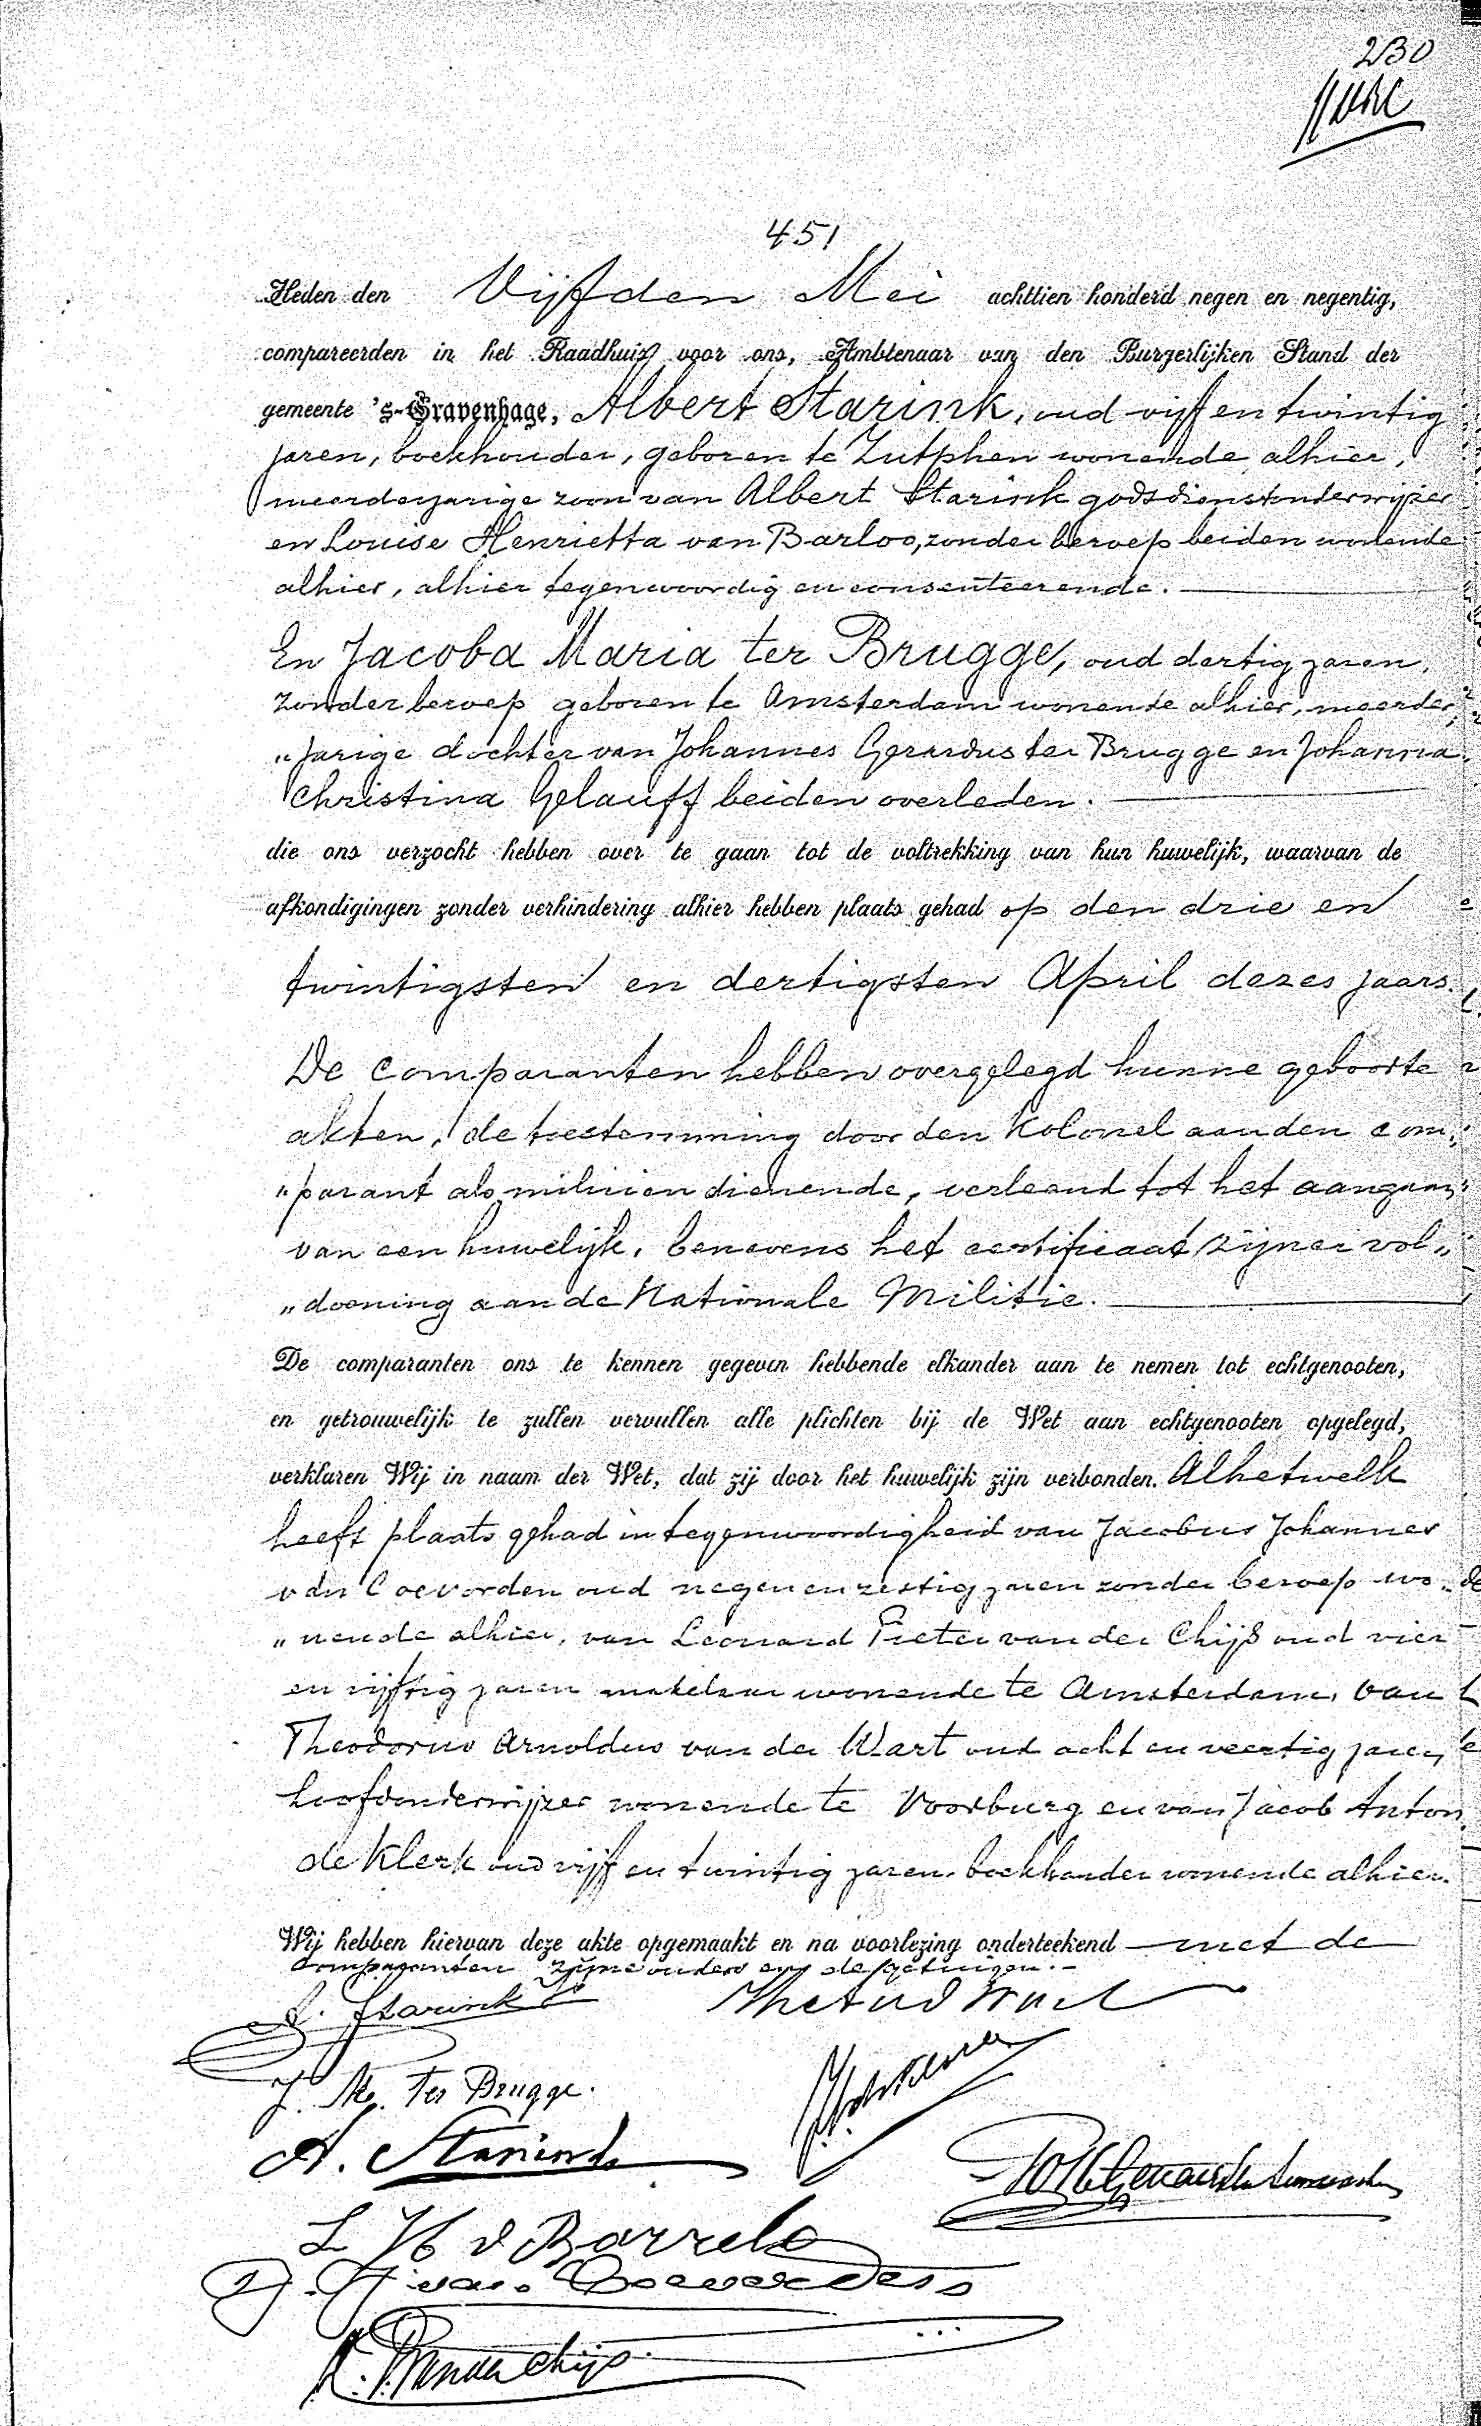 230
451
Heden den Vijfden Mei achttien honderd negen en negentig,
compareerden in het Raadhuis voor ons, Ambtenaar van den Burgerlijken Stand der
gemeente 's-Gravenhage, Albert Starink, oud vijf en twintig
jaren, boekhouder, geboren te Zutphen wonende alhier,
meerderjarige zoon van Albert Starink godsdienstonderwijzer
en Louise Henrietta van Barloo, zonder beroep beiden wonende
alhier, alhier tegenwoordig en consenteerende.
En Jacoba Maria ter Brugge, oud dertig jaren,
zonder beroep geboren te Amsterdam wonende alhier, meerder„
„jarige dochter van Johannes Gerardus ter Brugge en Johanna
Christina Gelauff beiden overleden.
die ons verzocht hebben over te gaan tot de voltrekking van hun huwelijk, waarvan de
afkondigingen zonder verhindering alhier hebben plaats gehad op den drie en
twintigsten en dertigsten April dezes jaars.
De comparanten hebben overgelegd hunne geboorte
akten, de toestemming door den Kolonel aan den com„
„parant als milicien dienende, verleend tot het aangaan
van een huwelijk, benevens het certificaat zijner vol„
„doening aan de Nationale Militie.
De comparanten ons te kennen gegeven hebbende elkander aan te nemen tot echtgenooten,
en getrouwelijk te zullen vervullen alle plichten bij de Wet aan echtgenooten opgelegd,
verklaren Wij in naam der Wet, dat zij door het huwelijk zijn verbonden. Alhetwelk
heeft plaats gehad in tegenwoordigheid van Jacobus Johannes
van Coevorden oud negen en zestig jaren zonder beroep wo„
„nende alhier, van Leonard Pieter van der Chijs oud vier
en vijftig jaren makelaar wonende te Amsterdam, van
Theodorus Arnoldus van der Wart oud acht en veertig jaren,
hoofdonderwijzer wonende te Voorburg en van Jacob Anton
de Klerk oud vijf en twintig jaren, boekhouder wonende alhier.
Wij hebben hiervan deze akte opgemaakt en na voorlezing onderteekend met de
Comparanten zijne ouders en de getuigen.
A. Starink Jr
J. M. ter Brugge.
A. Starink
L H v Barrelo
J. J. van Coevorden
L. P. van der Chijs